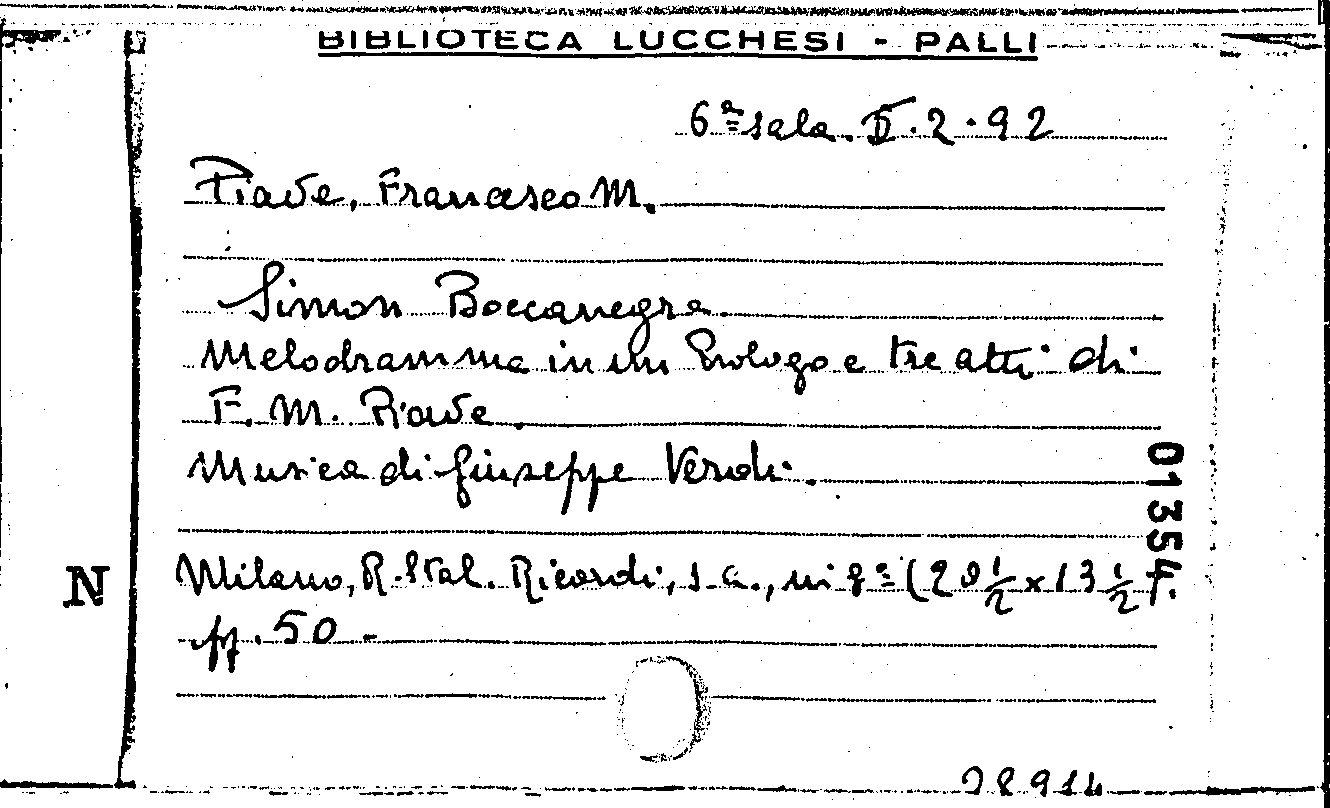 BIBLIOTECA LUCCHESI - PALLI
6ª sala. II.2.92
Piave, Francesco M.
Simon Boccanegra.
Melodramma in un Prologo e tre atti di
F. M. Piave.
Musica di Giuseppe Verdi.
01354
N
Milano, R. Stal. Ricordi, s.a., in 8º (20 ½ x 13 ½).
pp. 50 -
28914